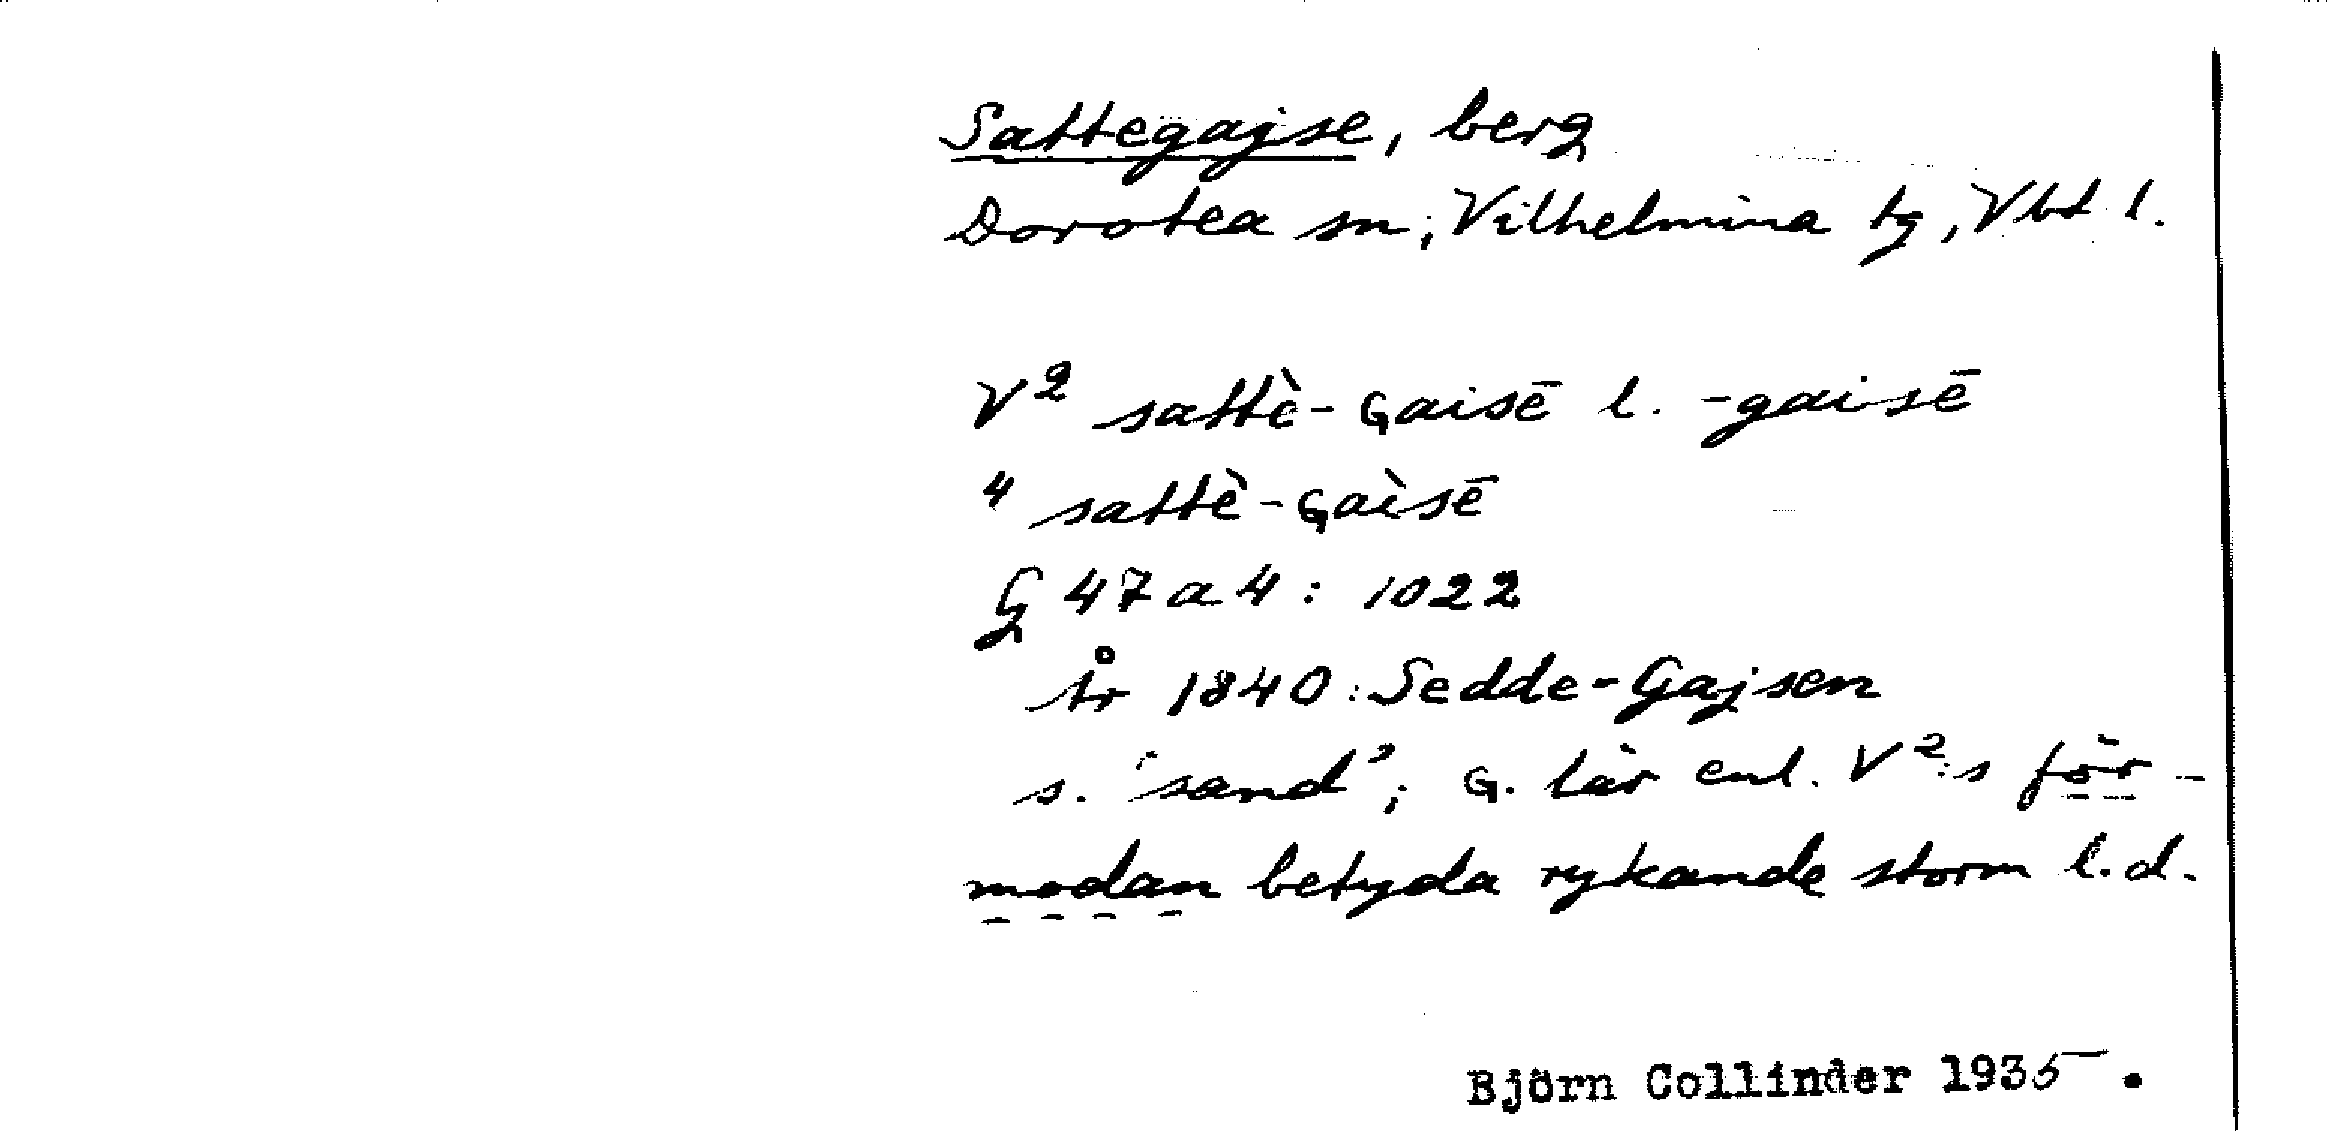 Sattegajse, berg
Dorotea sn; Vilhelmina tg, Vbt l.
V² sattè-Gaisē l. -gaisē
" sattè-Gàisē
G 47a4: 1022
År 1840: Sedde-Gajsen
s. 'sand'; G. lär enl. V²:s för-
modan betyda rykande storm l.d.
Björn Collinder 1935.